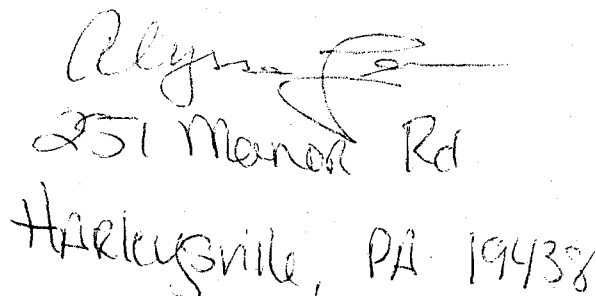 Alyssa
251 Manor Rd
Harleysville, PA 19438